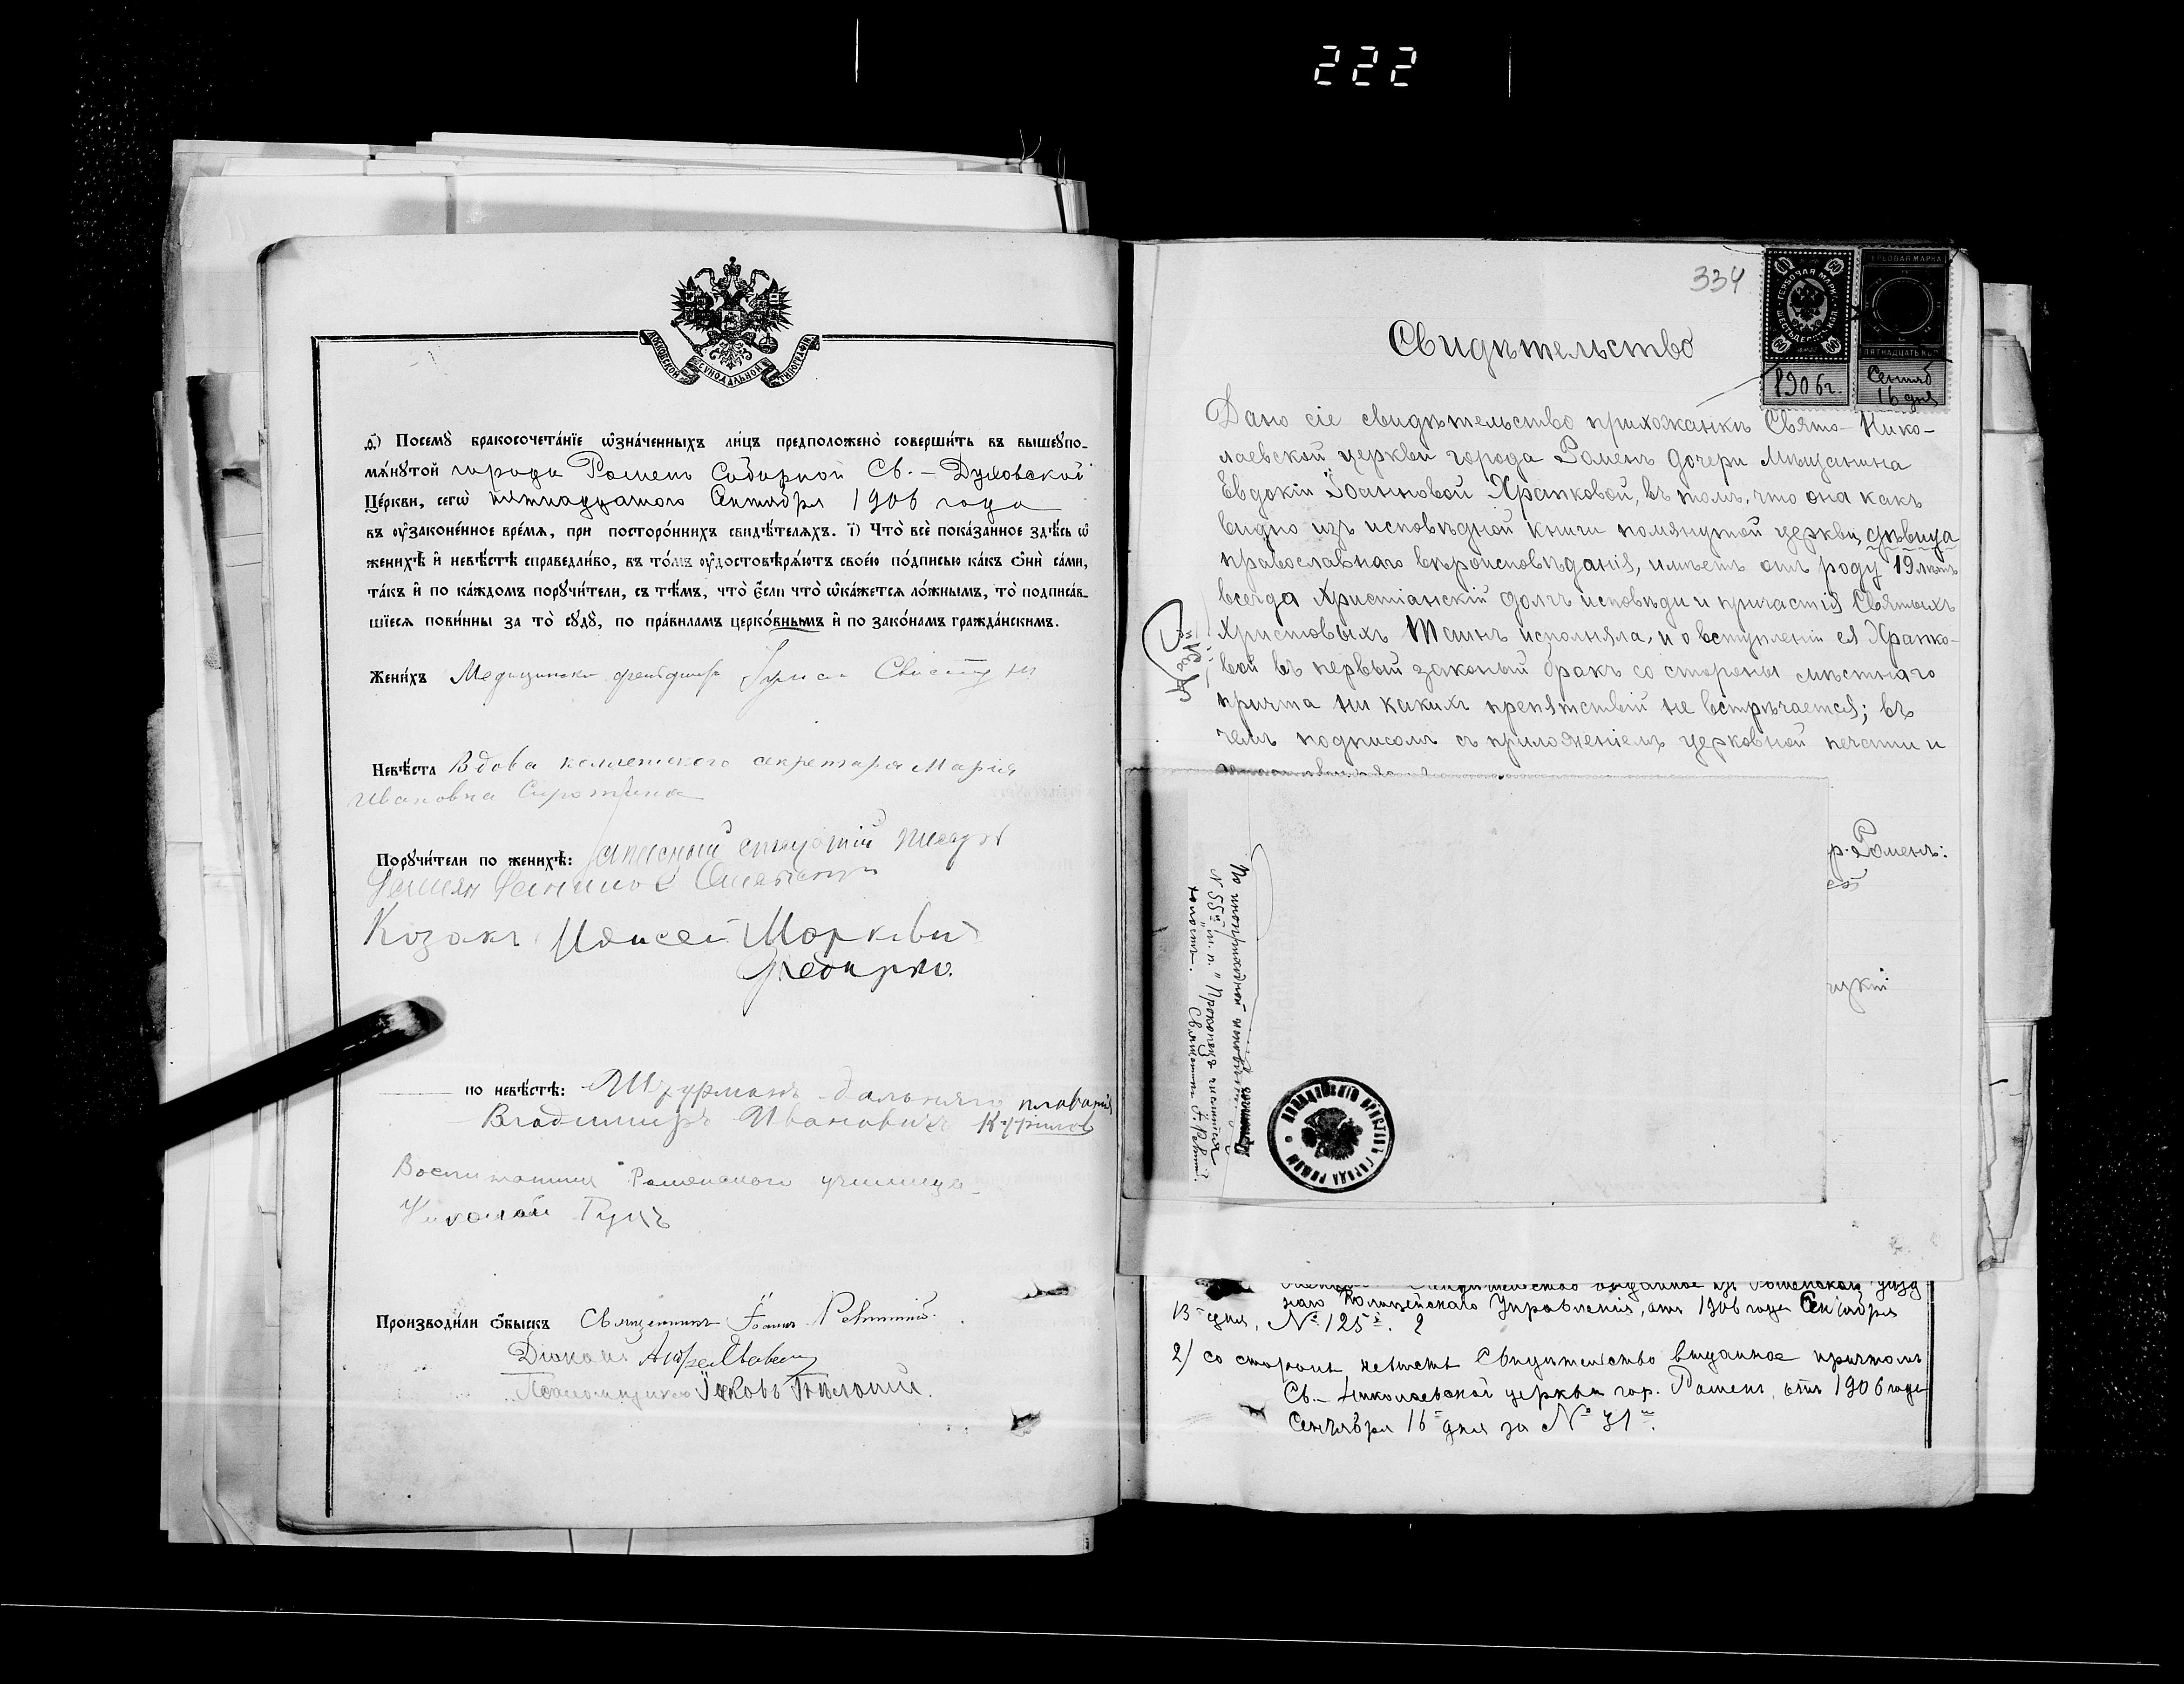 222
МОСКОВСКОЙ СѴНОДАЛЬНОЙ ТИПОГРАФІИ
д҃) Посемꙋ̀ бракосочета́нїе ѡ҆зна́ченныхъ ли́цъ предположено̀ соверши́ть въ вышеꙋпо-
мѧ́нꙋтой города Роменъ Соборной Св.-Духовской
Це́ркви, сегѡ̀ пятнадцатого Сентября 1906 года
въ ᲂу҆законе́нное вре́мѧ, при посторо́ннихъ свидѣ́телѧхъ. і҃) Что̀ всѐ пока́занное здѣ́сь ѡ҆
женихѣ̀ и҆ невѣ́стѣ справедли́во, въ то́мъ ᲂу҆достовѣрѧ́ютъ свое́ю по́дписью ка́къ ѻ҆нѝ са́ми,
та́къ и҆ по ка́ждомъ порꙋчи́тели, съ тѣ́мъ, что̀ е҆́сли что̀ ѡ҆ка́жетсѧ ло́жнымъ, то̀ подписа́в-
шїесѧ пови́нны за то̀ сꙋдꙋ̀, по пра́виламъ церко́внымъ и҆ по зако́намъ гражда́нскимъ.
Жени́хъ Медицински фельдшеръ Свистун
Невѣ́ста Вдова коллежского секретаря Марія
Ивановна Сиротина
Порꙋчи́тели по женихѣ̀: запасный старшій писарь
Козакъ Моисей Маркови
по невѣ́стѣ: Штурманъ дальняго плаванія
Владимиръ Ивановичъ Курилов
Воспитанник Роменского училища
Николай Гуцъ
Производи́ли ѻ҆́быскъ Священникъ Іоаннъ
Діаконъ Андрей
Псаломщикъ Іяковъ
334
ГЕРБОВАЯ МАРКА
ШЕСТЬДЕСЯТЪ КОП.
60
1906 г.
ГЕРБОВАЯ МАРКА
ПЯТНАДЦАТЬ КОП.
Сентяб
16 дня
Свидѣтельство
Дано сіе свидѣтельство прихожанкѣ Свято-Нико-
лаевской церкви города Роменъ дочери мѣщанина
Евдокіи Іоанновой Храпковой, въ томъ, что она какъ
видно изъ исповѣдной книги помянутой церкви, дѣвица
православнаго вѣроисповѣданія, имѣетъ отъ роду 19 лѣтъ
всегда Христіанскій долгъ исповѣди и причастія Святыхъ
Христовыхъ Таинъ исполняла, и о вступленіи ея Храпко-
вой въ первый законый бракъ со стороны мѣстнаго
причта ни какихъ препятствій не встрѣчается; въ
чемъ подписомъ съ приложеніемъ церковной печати и
р. Роменъ:
ей
цкій
По
№ 55й, т.п. "Прохонецъ числится
холостъ. Священникъ І.
ГОРОДА РОМЕНЪ
Свидѣтельство выданное изъ Роменскаго уѣзд
наго Полицейскаго Управленія, отъ 1906 года Сентября
13 дня, № 125.
2) со стороны невѣсты Свидѣтельство выданное причтомъ
Св.-Николаевской церкви гор. Роменъ, отъ 1906 года
Сентября 16 дня за № 31.